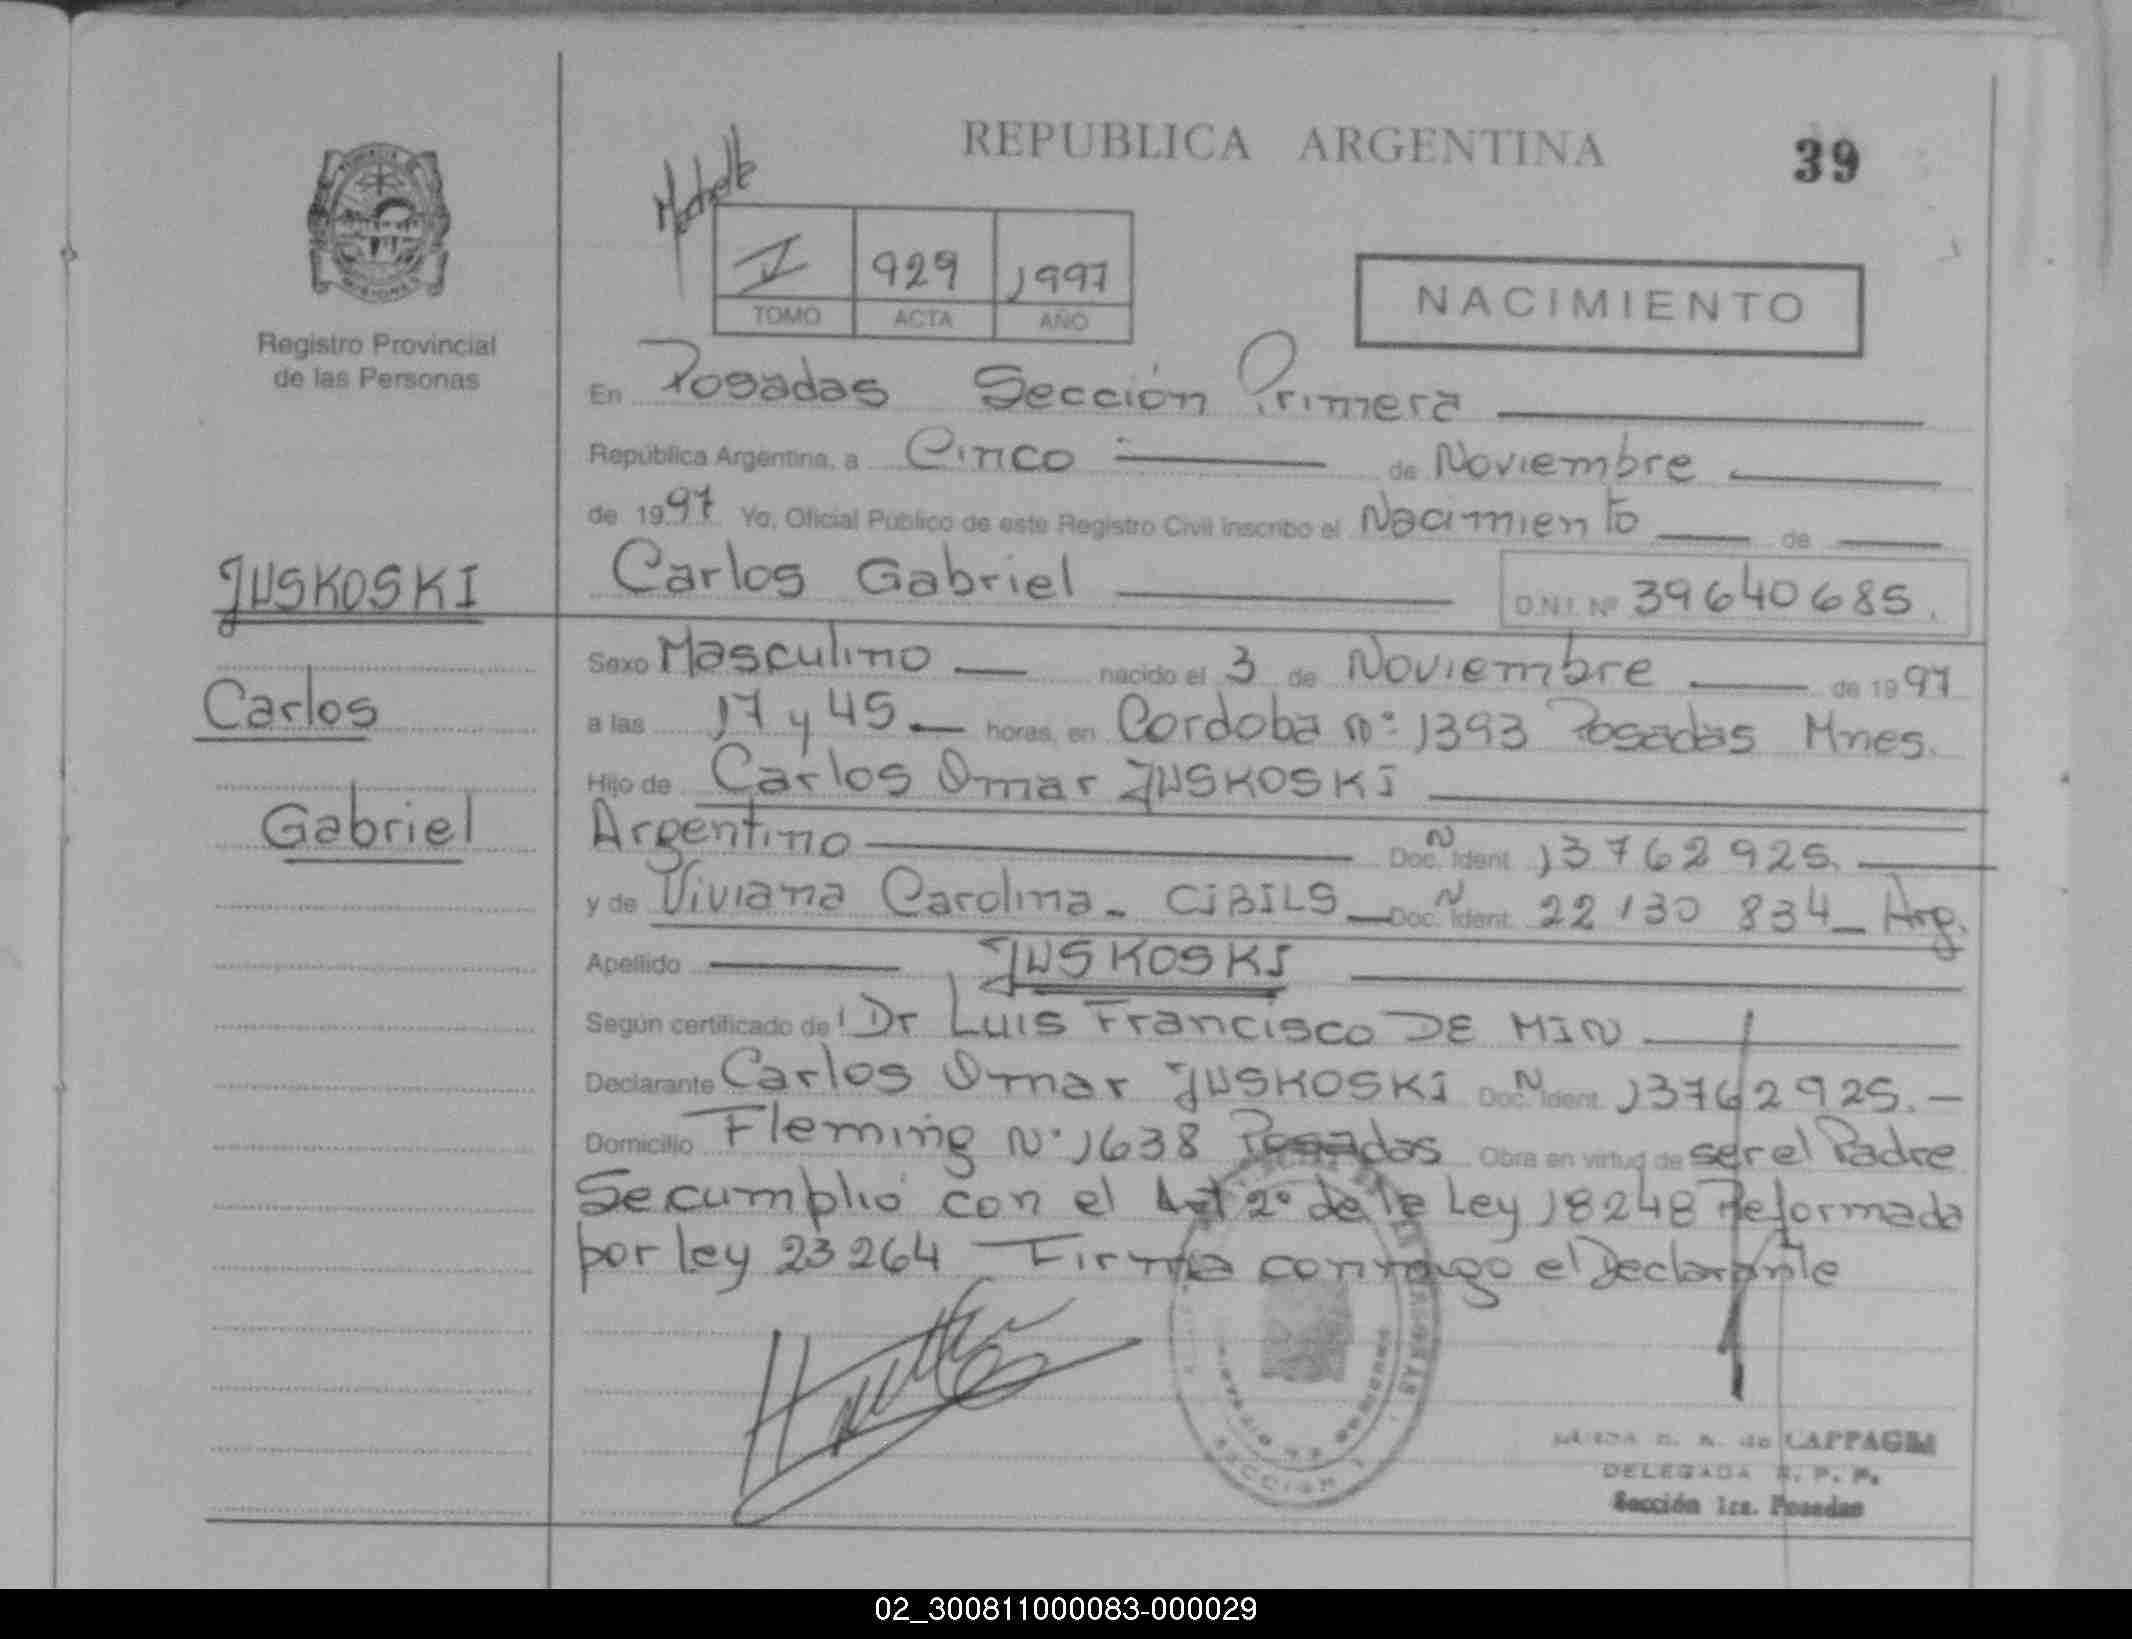 REPUBLICA ARGENTINA
39
V 929 1997
TOMO ACTA AÑO
NACIMIENTO
MISIONES
Registro Provincial
de las Personas
En Posadas Sección Primera
República Argentina, a Cinco de Noviembre
de 1997 Yo, Oficial Público de este Registro Civil inscribo el Nacimiento de
JUSKOSKI
Carlos
Gabriel
Carlos Gabriel D.N.I. Nº 39640685.
Sexo Masculino nacido el 3 de Noviembre de 1997
a las 17 y 45 horas, en Cordoba nº 1393 Posadas Mnes.
Hijo de Carlos Omar JUSKOSKI
Argentino Doc. N Ident. 13762925.
y de Viviana Carolina - CIBILS Doc. N Ident. 22130 834 - Arg.
Apellido JUSKOSKI
Según certificado de Dr Luis Francisco DE MIN
Declarante Carlos Omar JUSKOSKI Doc. N Ident. 13762925. -
Domicilio Fleming Nº 1638 Posadas Obra en virtud de ser el Padre
Se cumplió con el Art 2º de la Ley 18248 Reformada
por ley 23264 Firma conmigo el Declarante
de CAPPAGLI
DELEGADA R. P. P.
Sección 1ra. Posadas
SECCION 1
02_300811000083-000029